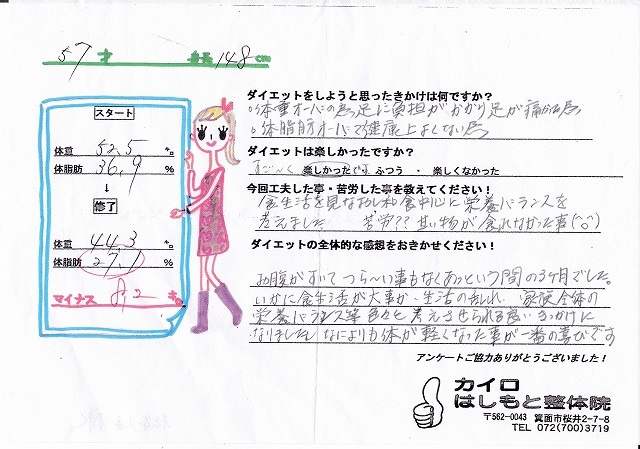 57才 身長148cm
スタート
体重 52.5 キロ
体脂肪 36.9 %
↓
修了
体重 44.3 キロ
体脂肪 27.1 %
マイナス 8.2 キロ
ダイエットをしようと思ったきかけは何ですか?
○体重オーバーの為足に負担がかかり足が痛い為
○体脂肪オーバーで健康上よくない為
ダイエットは楽しかったですか?
すご〜く 楽しかったです ふつう ・ 楽しくなかった
今回工夫した事・苦労した事を教えてください!
食生活を見なおし和食中心に栄養バランスを
考えました 苦労?? 甘い物が食れなかった事(^o^)
ダイエットの全体的な感想をおきかせください!
お腹がすいてつら〜い事もなくあっという間の3ヶ月でした。
いかに食生活が大事か、生活の乱れ、家族全体の
栄養バランス等色々と考えさせられる良いきっかけに
なりました。なによりも体が軽くなった事が一番の喜びです
アンケートご協力ありがとうございました!
カイロ
はしもと整体院
〒562-0043 箕面市桜井2-7-8
TEL 072(700)3719